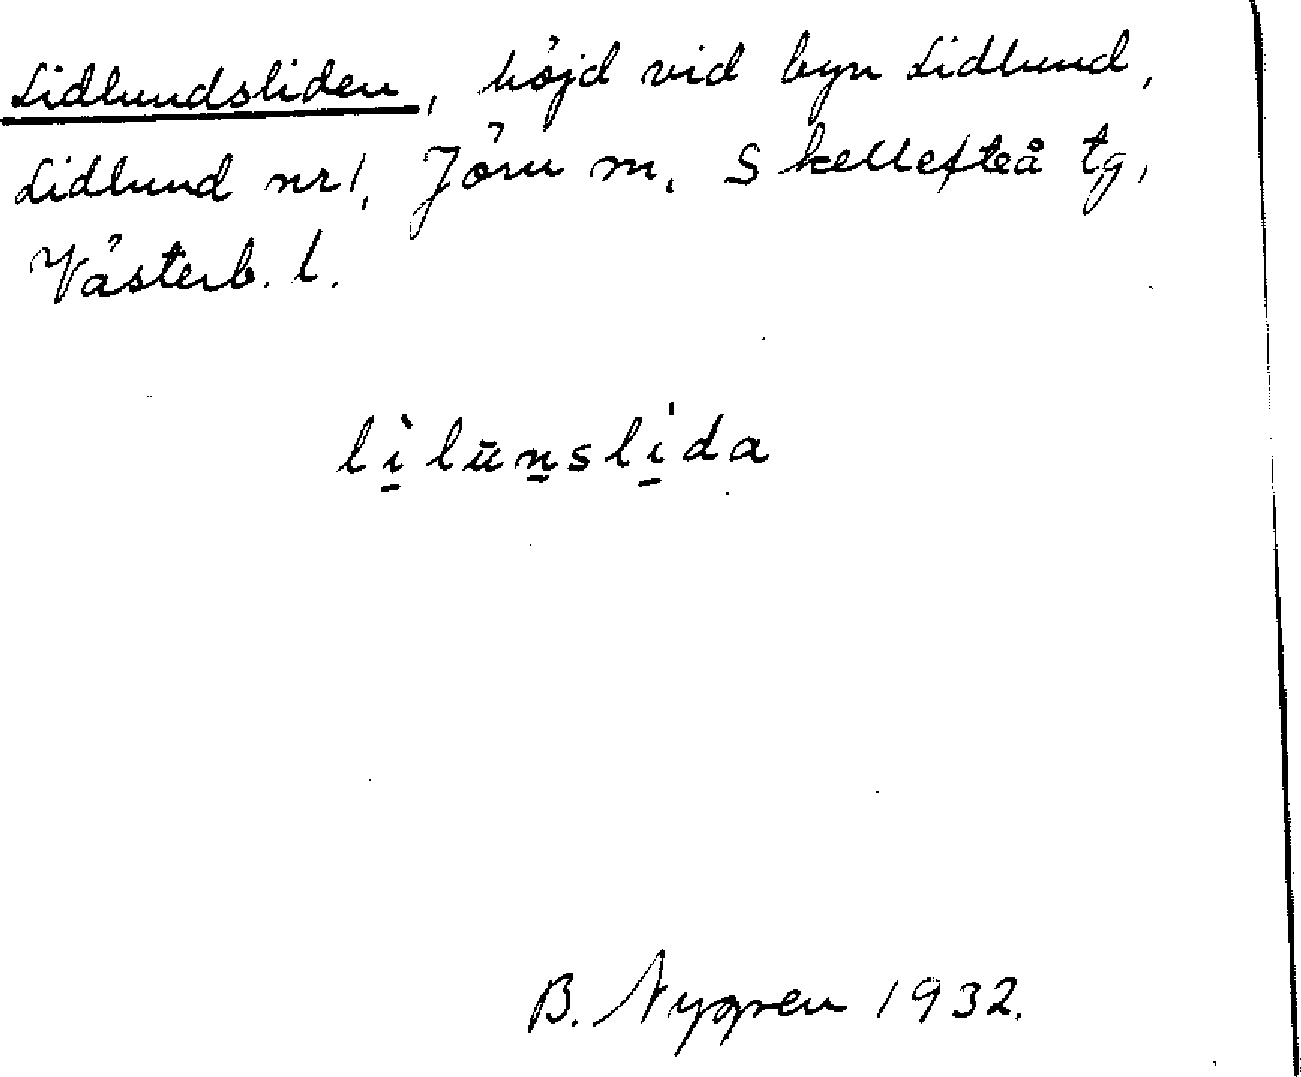 Lidlundsliden, höjd vid byn Lidlund,
Lidlund nr 1, Jörn m. Skellefteå tg,
Västerb. l.
lì̠lūn̠sli̠̍da
B. Nygren 1932.